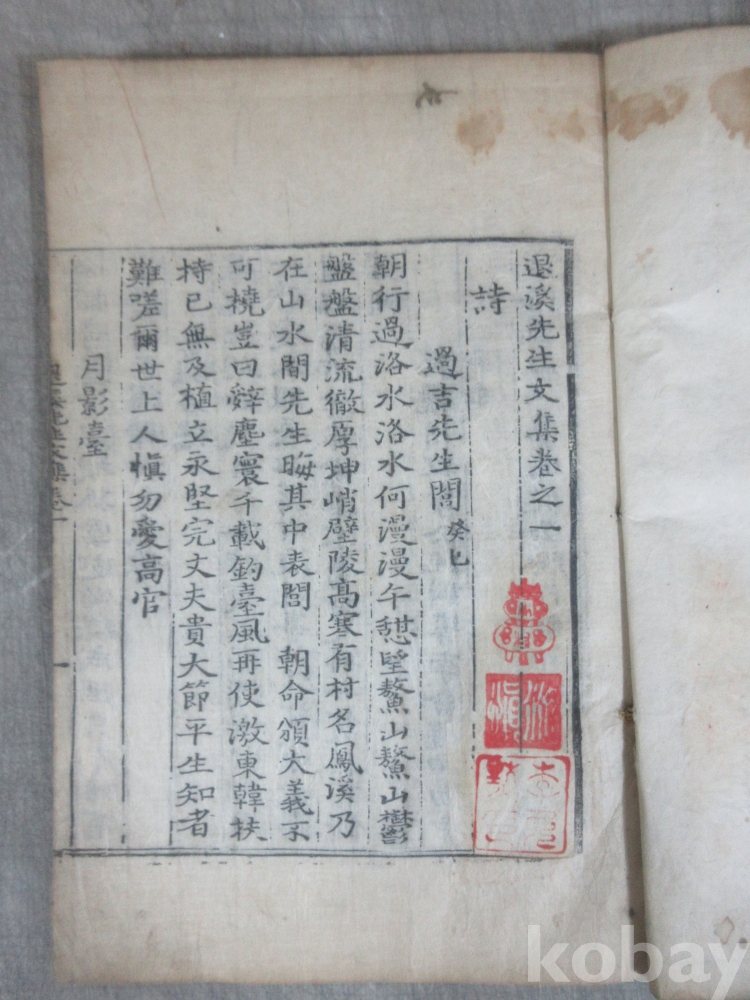 退溪先生文集卷之一
詩
過吉先生閭 癸巳
朝行過洛水洛水何漫漫午憇望鰲山鰲山鬱
盤盤清流徹厚坤峭壁陵高寒有村名鳳溪乃
在山水間先生晦其中表閭 朝命頒大義不
可撓豈曰辭塵寰千載釣臺風再使激東韓扶
持已無及植立永堅完丈夫貴大節平生知者
難嗟爾世上人愼勿愛高官
月影臺
退溪先生文集卷一
一
kobay